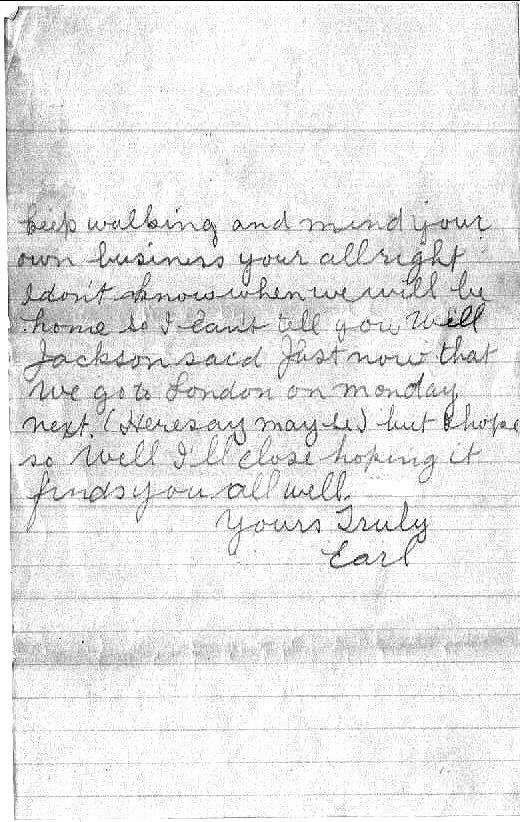 keep walking and mind your
own business your all right
I don't know when we will be
home so I can't tell you Well
Jackson said Just now that
we go to London on monday
next. (Heresay may be) but I hope
so Well I'll close hoping it
finds you all well.
Yours Truly
Earl